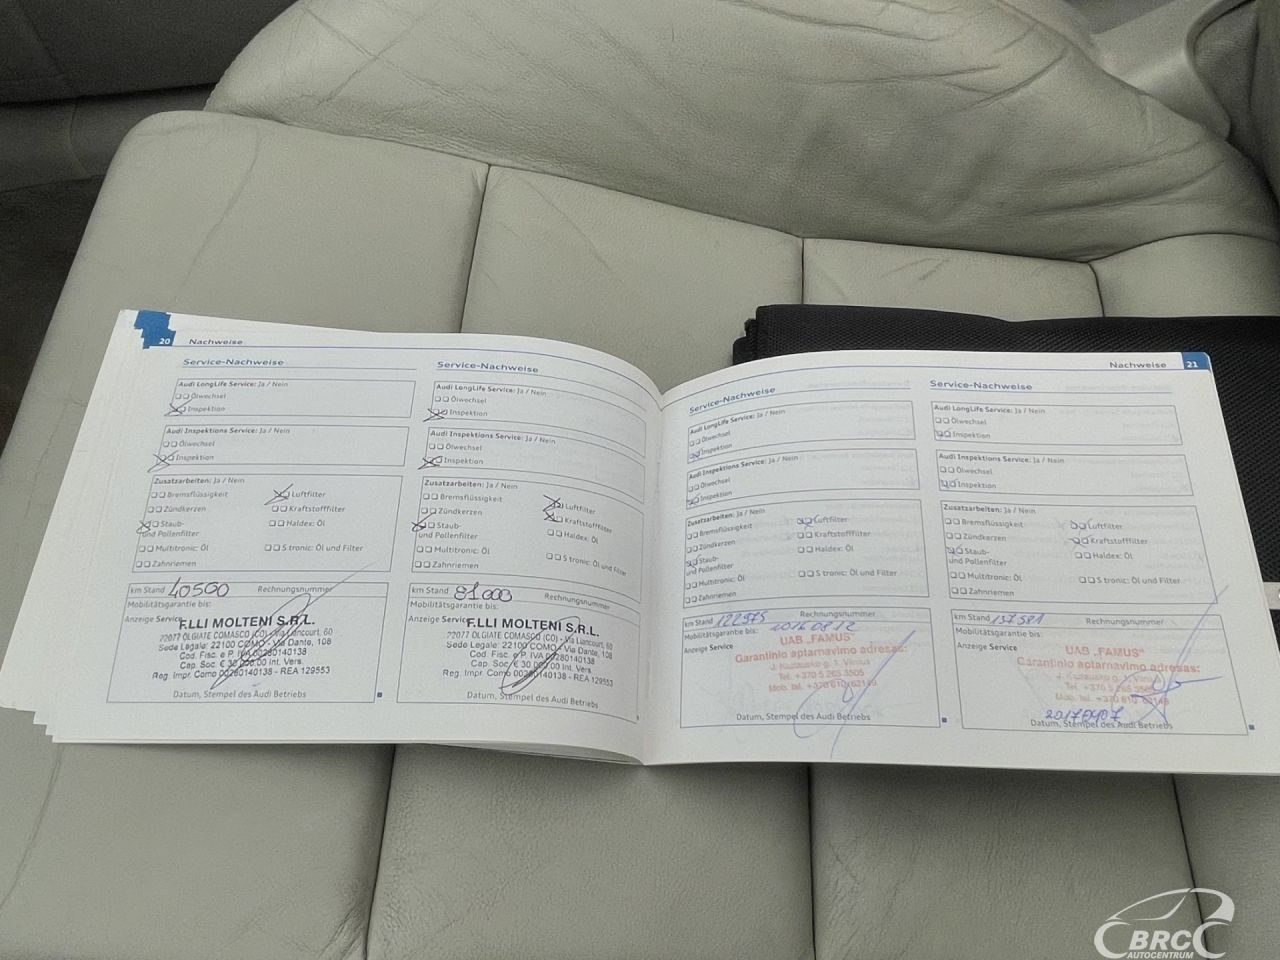 20 Nachweise
Service-Nachweise
Audi LongLife Service: Ja / Nein
Ölwechsel
Inspektion
Audi Inspektions Service: Ja / Nein
Ölwechsel
Inspektion
Zusatzarbeiten: Ja / Nein
Bremsflüssigkeit Luftfilter
Zündkerzen Kraftstofffilter
Staub- Haldex: Öl
und Pollenfilter
Multitronic: Öl S tronic: Öl und Filter
Zahnriemen
km Stand 40500 Rechnungsnummer
Mobilitätsgarantie bis:
Anzeige Service
F.LLI MOLTENI S.R.L.
22077 OLGIATE COMASCO (CO) - Via Liancourt, 60
Sede Legale: 22100 COMO - Via Dante, 108
Cod. Fisc. e P. IVA 00280140138
Cap. Soc. € 30.000.00 Int. Vers.
Reg. Impr. Como 00280140138 - REA 129553
Datum, Stempel des Audi Betriebs
Service-Nachweise
Audi LongLife Service: Ja / Nein
Ölwechsel
Inspektion
Audi Inspektions Service: Ja / Nein
Ölwechsel
Inspektion
Zusatzarbeiten: Ja / Nein
Bremsflüssigkeit Luftfilter
Zündkerzen Kraftstofffilter
Staub- Haldex: Öl
und Pollenfilter
Multitronic: Öl S tronic: Öl und Filter
Zahnriemen
km Stand 81000 Rechnungsnummer
Mobilitätsgarantie bis:
Anzeige Service
F.LLI MOLTENI S.R.L.
22077 OLGIATE COMASCO (CO) - Via Liancourt, 60
Sede Legale: 22100 COMO - Via Dante, 108
Cod. Fisc. e P. IVA 00280140138
Cap. Soc. € 30.000.00 Int. Vers.
Reg. Impr. Como 00280140138 - REA 129553
Datum, Stempel des Audi Betriebs
Nachweise 21
Service-Nachweise
Audi LongLife Service: Ja / Nein
Ölwechsel
Inspektion
Audi Inspektions Service: Ja / Nein
Ölwechsel
Inspektion
Zusatzarbeiten: Ja / Nein
Bremsflüssigkeit Luftfilter
Zündkerzen Kraftstofffilter
Staub- Haldex: Öl
und Pollenfilter
Multitronic: Öl S tronic: Öl und Filter
Zahnriemen
km Stand 122975 Rechnungsnummer
Mobilitätsgarantie bis: 2016 08 12
Anzeige Service
UAB „FAMUS“
Garantinio aptarnavimo adresas:
g. 1, Vilnius
Tel. +370 5 265 3505
Mob. tel. +370 610 63149
Datum, Stempel des Audi Betriebs
Service-Nachweise
Audi LongLife Service: Ja / Nein
Ölwechsel
Inspektion
Audi Inspektions Service: Ja / Nein
Ölwechsel
Inspektion
Zusatzarbeiten: Ja / Nein
Bremsflüssigkeit Luftfilter
Zündkerzen Kraftstofffilter
Staub- Haldex: Öl
und Pollenfilter
Multitronic: Öl S tronic: Öl und Filter
Zahnriemen
km Stand 157581 Rechnungsnummer
Mobilitätsgarantie bis:
Anzeige Service
UAB „FAMUS“
Garantinio aptarnavimo adresas:
g. 1, Vilnius
Tel. +370 5 265 3505
Mob. tel. +370 610 63149
20170907
Datum, Stempel des Audi Betriebs
BRC
AUTOCENTRUM